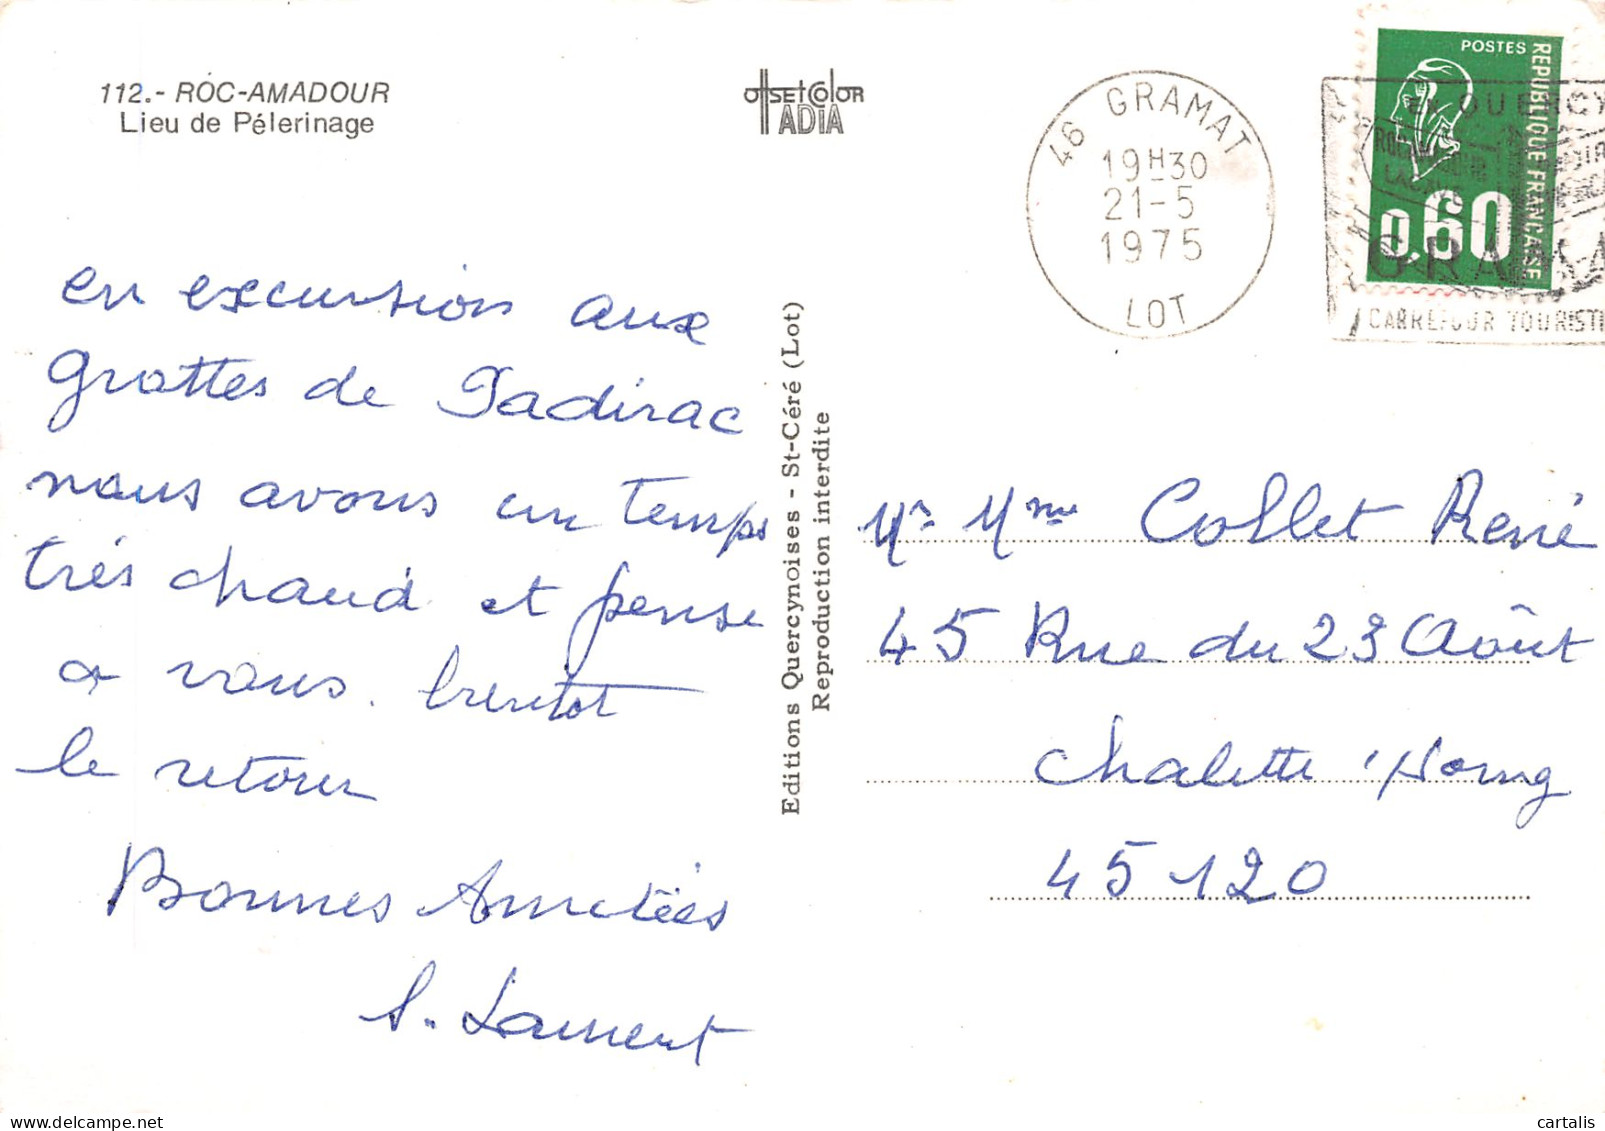 112.- ROC-AMADOUR
Lieu de Pélerinage
offset color
IADIA
46 GRAMAT
19H30
21-5
1975
LOT
POSTES
REPUBLIQUE FRANCAISE
0,60
QUERCY
CARREFOUR TOURISTI
en excursion aux
grottes de Padirac
nous avons un temps
très chaud et pense
a vous. bientot
le retour
Bonnes Amitiées
S. Laurent
Editions Quercynoises - St-Céré (Lot)
Reproduction interdite
Mr Mme Collet René
45 Rue du 23 Août
Chalette
45120
cartalis